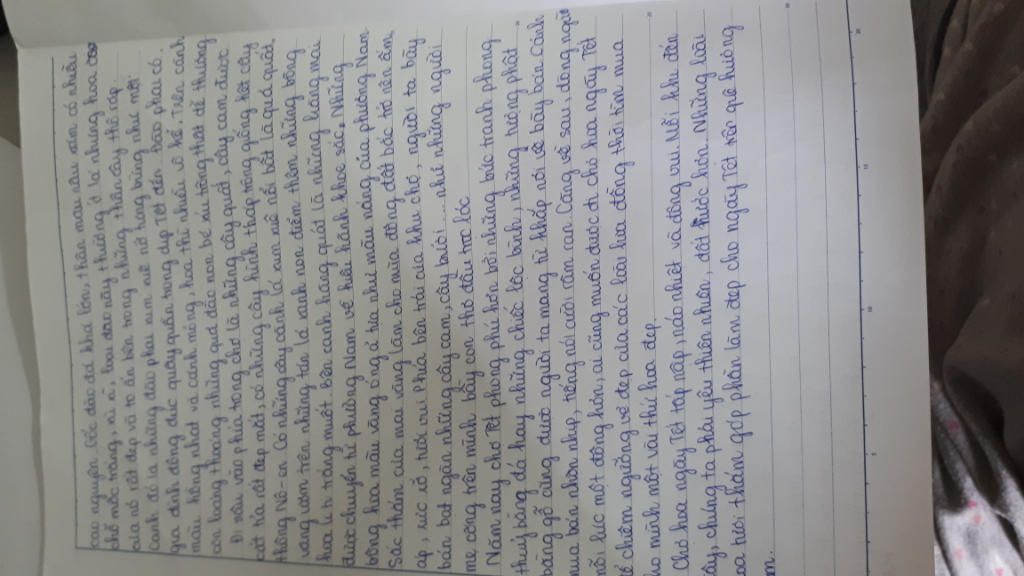 cao nguyên. Gốc đào đá khá lớn, thân màu nâu xám có nhiều
chỗ mốc trắng, xù xì, loại đào này thường ít lá nhưng hoa
của nó rất đẹp và to ẩn bên trong những thân cây thô ráp.
cạnh đó là những đào phai um nê nở hồng bừng như mỗi
gia đình đông đúc quây quần trong dịp Tết đến. Đào phai có
màu hồng nhạt và cánh mỏng, hoa thì nhiều vô kể. Trên cành
còn loáng thoáng những quả đào non bé xíu trông thật dễ thương.
Đi sâu vào phía trong chợ là những cây quất, cây cam được
cắt tỉa rất đẹp mắt, có những cây hình tháp trông giống hệt cây
thông Nô-en. Có những cây cành lá xum xuê nổi bật là quả quất
vàng ươm trên những tán lá xanh non điểm thêm những bông
hoa li ti trắng muốt. Bên cạnh hàng quất là những hàng mai
được chuyển từ phương Nam về hãy hãnh khoe sắc. Những
bông hoa màu vàng óng ả tựa như màu nắng của phương Nam
Sắc thắm của mai vàng làm cho mùa đông đột bấc trở nên ấm
áp, rúc rỡ, tươi vui. Phía bên trái của khu chợ, người ta bày
bán bạt ngàn những cây cam, cây bưởi... như những người
mẹ cõng trên mình bầy con thơ đầu trọc lóc.
Năm nay chợ Tết phong phú hơn bởi những bức tranh phong
thuỷ bằng đá hay những chiếc lộc bình, những tượng phật
bằng gỗ cũng được người ta mang từ khắp nơi về bày bán. Cảnh
mua bán nhộn nhịp, tiếng nói cười râm ran. Càng về sau, dòng người
mỗi lúc một đông hơn, ai cũng muốn được đi chợ hoa ngày Tết
để chiêm ngưỡng vẻ đẹp của các loài hoa đồng thời tìm mua
cho mình một vài thứ hoa đẹp.
Chợ hoa ngày Tết tấp nập, náo nhiệt và đông vui. Mỗi khi đến
đây, chúng ta phải yêu thiên nhiên, đất nước hơn. Những loài
hoa tươi thắm góp phần làm đẹp cho ngày Tết trên quê hương
em.